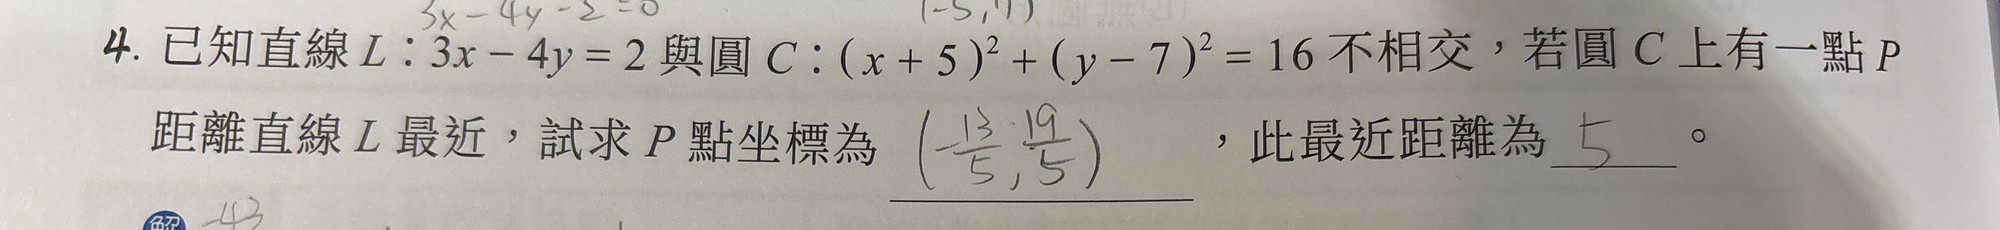 3x-4y-2=0 (-5,7)
4. 已知直線 L：3x − 4y = 2 與圓 C：(x + 5)² + (y − 7)² = 16 不相交，若圓 C 上有一點 P
距離直線 L 最近，試求 P 點坐標為 (-13/5, 19/5) ，此最近距離為 5 。
解 -43